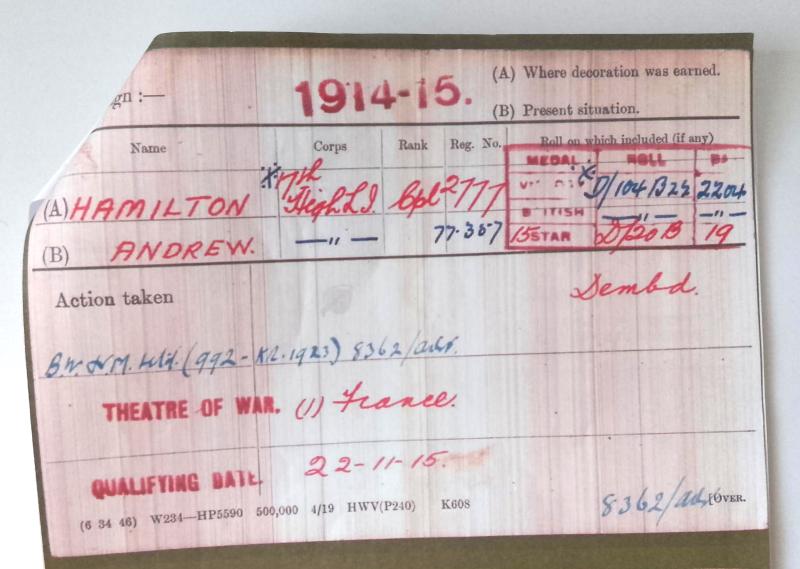 gn :—
1914-15.
(A) Where decoration was earned.
(B) Present situation.
Name Corps Rank Reg. No. Roll on which included (if any)
MEDAL ROLL
(A) HAMILTON 17th High L.I. Cpl 2777 D/104 B22 2204
BRITISH —„— —„—
(B) ANDREW. —„— 77387 15 STAR D/20 B 19
Action taken Dembd.
B.W. & V.M. (992-KR.1923) 8362/adt.
THEATRE OF WAR. (1) France.
QUALIFYING DATE. 22-11-15.
8362/adt. [OVER.
(6 34 46) W234—HP5590 500,000 4/19 HWV(P240) K608